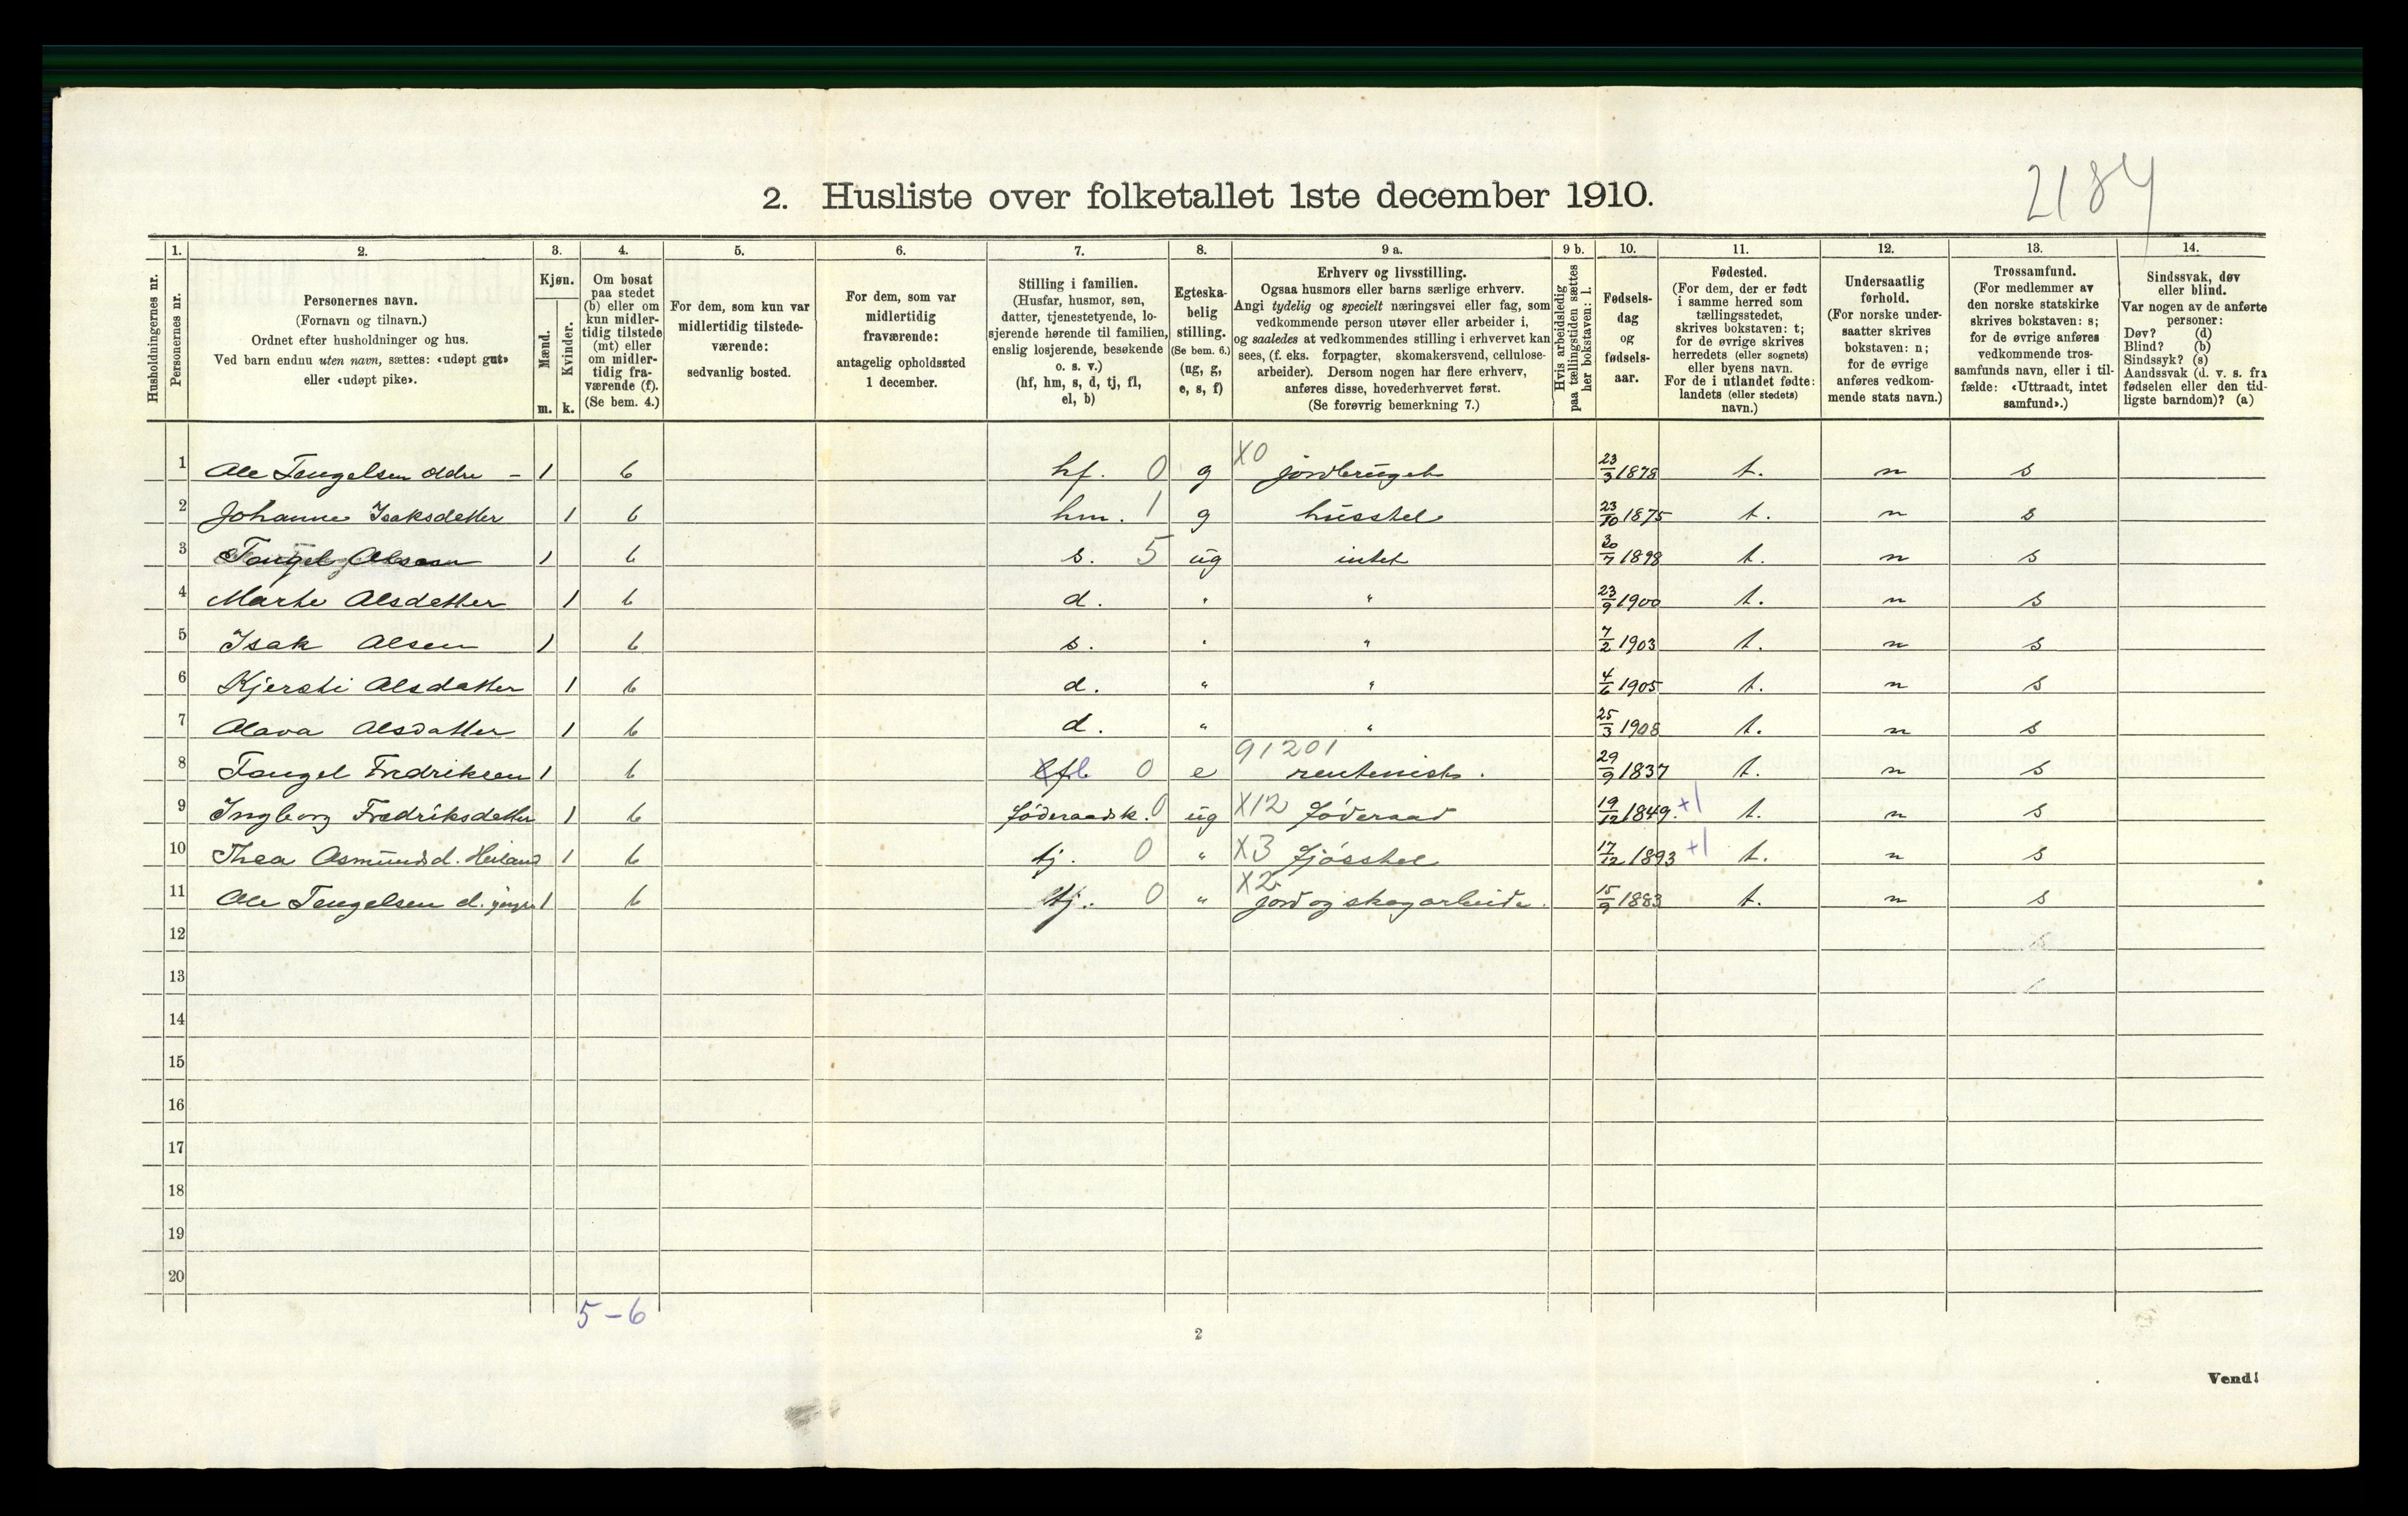 2184
2. Husliste over folketallet 1ste december 1910.
1. 2. 3. 4. 5. 6. 7. 8. 9 a. 9 b. 10. 11. 12. 13. 14.
Husholdningernes nr.
Personernes nr.
Personernes navn.
(Fornavn og tilnavn.)
Ordnet efter husholdninger og hus.
Ved barn endnu uten navn, sættes: «udøpt gut»
eller «udøpt pike».
Kjøn.
Mænd.
Kvinder.
m. k.
Om bosat
paa stedet
(b) eller om
kun midler-
tidig tilstede
(mt) eller
om midler-
tidig fra-
værende (f).
(Se bem. 4.)
For dem, som kun var
midlertidig tilstede-
værende:
sedvanlig bosted.
For dem, som var
midlertidig
fraværende:
antagelig opholdssted
1 december.
Stilling i familien.
(Husfar, husmor, søn,
datter, tjenestetyende, lo-
sjerende hørende til familien,
enslig losjerende, besøkende
o. s. v.)
(hf, hm, s, d, tj, fl,
el, b)
Egteska-
belig
stilling.
(Se bem. 6.)
(ug, g,
e, s, f)
Erhverv og livsstilling.
Ogsaa husmors eller barns særlige erhverv.
Angi tydelig og specielt næringsvei eller fag, som
vedkommende person utøver eller arbeider i,
og saaledes at vedkommendes stilling i erhvervet kan
sees, (f. eks. forpagter, skomakersvend, cellulose-
arbeider). Dersom nogen har flere erhverv,
anføres disse, hovederhvervet først.
(Se forøvrig bemerkning 7.)
Hvis arbeidsledig
paa tællingstiden sættes
her bokstaven: l.
Fødsels-
dag
og
fødsels-
aar.
Fødested.
(For dem, der er født
i samme herred som
tællingsstedet,
skrives bokstaven: t;
for de øvrige skrives
herredets (eller sognets)
eller byens navn.
For de i utlandet fødte:
landets (eller stedets)
navn.)
Undersaatlig
forhold.
(For norske under-
saatter skrives
bokstaven: n;
for de øvrige
anføres vedkom-
mende stats navn.)
Trossamfund.
(For medlemmer av
den norske statskirke
skrives bokstaven: s;
for de øvrige anføres
vedkommende tros-
samfunds navn, eller i til-
fælde: «Uttraadt, intet
samfund».)
Sindssvak, døv
eller blind.
Var nogen av de anførte
personer:
Døv? (d)
Blind? (b)
Sindssyk? (s)
Aandssvak (d. v. s. fra
fødselen eller den tid-
ligste barndom)? (a)
1 Ole Tengelsen ddre - 1 b hf. 0 g X0 jordbruget 23/3 1878 t. n s
2 Johanne Isaksdetter 1 b hm. 1 g husstel 23/10 1875 t. n s
3 1 b s. 5 ug intet 30/7 1898 t. n s
4 Marte Alsdetter 1 b d. " " 23/9 1900 t. n s
5 Isak Alsen 1 b s. " " 7/2 1903 t. n s
6 Kjersti Alsdatter 1 b d. " " 4/6 1905 t. n s
7 Olava Alsdatter 1 b d. " " 25/3 1908 t. n s
8 Tengel Fredriksen 1 b 0 e 91201 rentenist. 29/9 1837 t. n s
9 Ingborg Fredriksdetter 1 b føderaadsk. 0 ug X12 Føderaad 19/12 1849. +1 t. n s
10 Thea Asmundsd. Heiland 1 b tj. 0 " X3 Fjøsstel 17/12 1893 +1 t. n s
11 Ole Tengelsen d. yngre 1 b tj. 0 " X2 jord og skogarbeide. 15/9 1883 t. n s
12
13
14
15
16
17
18
19
20
5-6
2
Vend!